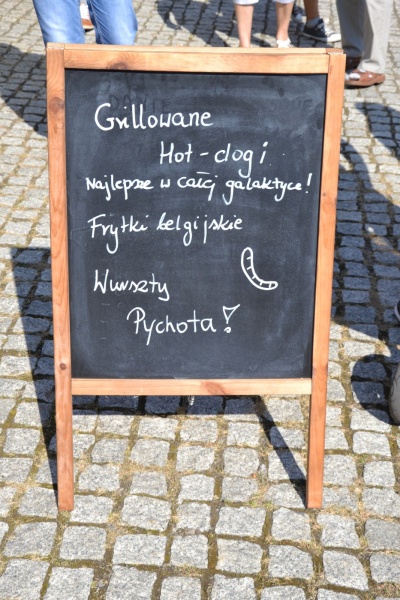 Grillowane
Hot-dogi
Najlepsze w całej galaktyce!
Frytki belgijskie
Wurszty
Pychota!